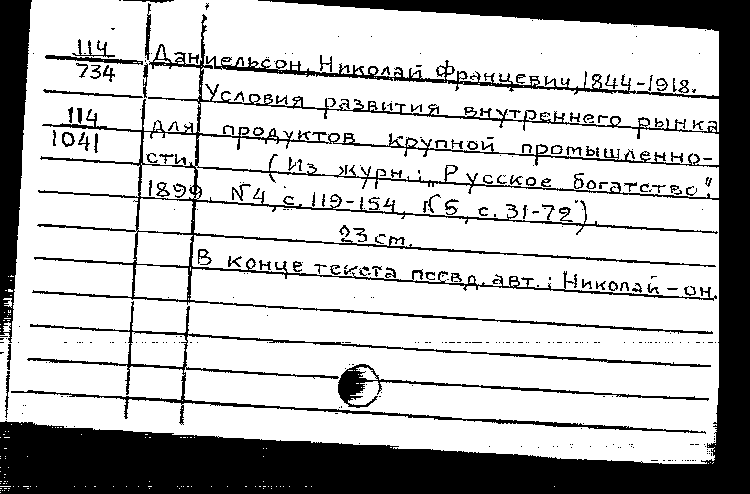 114
734
Даниельсон, Николай Францевич, 1844-1918.
Условия развития внутреннего рынка
114
1041
для продуктов крупной промышленно-
сти. (Из журн.: „Русское богатство".
1899. N4, с. 119-154, N5, с. 31-72).
23 ст.
В конце текста псевд. авт.: Николай-он.